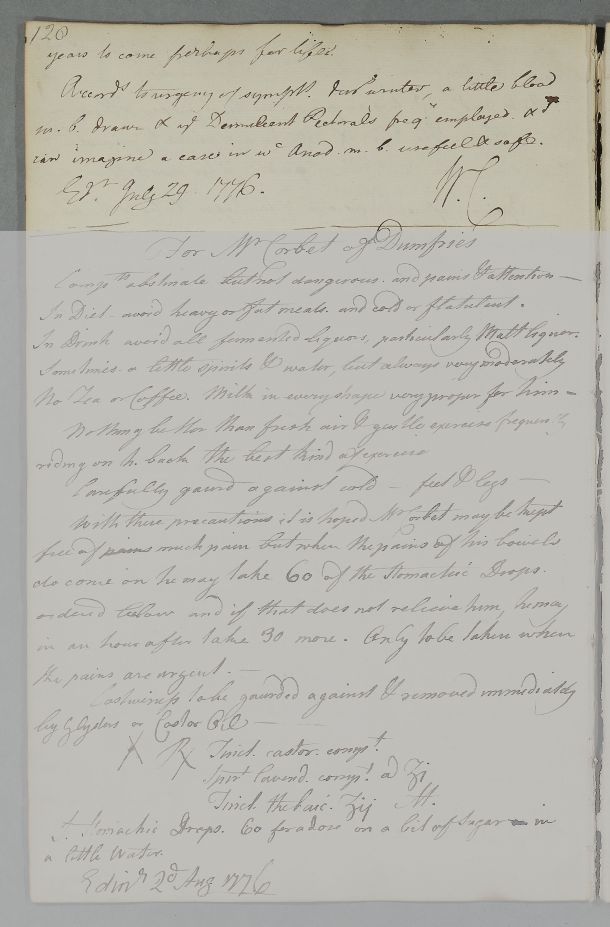 120
years to come perhaps for life.
Accords to urgency of sympt. dur winter, a little blood
m. b. drawn & ys Demulcent Pectorals freqy employed. & I
can imagine a case in wc Anod. m. b. usefull & safe.
Edr. July 29 1776. W. C.
For Mr Corbet of Dumfries
Compts obstinate but not dangerous. and pains & attention —
In Diet - avoid heavy or fat meals. and cold or flatulent.
In Drink avoid all fermented liquors, particularly Malt liquor.
Sometimes a little spirits & water, but always very moderately
No Tea or Coffee. Milk in every shape very proper for him —
Nothing better than fresh air & gentle exercise frequently
riding on h. back the best kind of exercise
Carefully gaurd against cold — feet & legs —
With these precautions it is hoped Mr Corbet may be kept
free of pains much pain but when the pains of his bowels
do come on he may take 60 of the Stomachic Drops.
ordered below and if that does not relieve him, he may
in an hour after take 30 more. Only to be taken when
the pains are urgent. —
Costiveness to be gaurded against & removed immediately
by Glysters or Castor Oil —
X ℞ Tinct. castor. compt.
Spir. Lavend. compt. a ʒj
Tinct. thebaic. ʒij M.
f. Stomachic Drops. 60 for a dose on a bit of sugar — in
a little water.
Edinr 2d Aug 1776